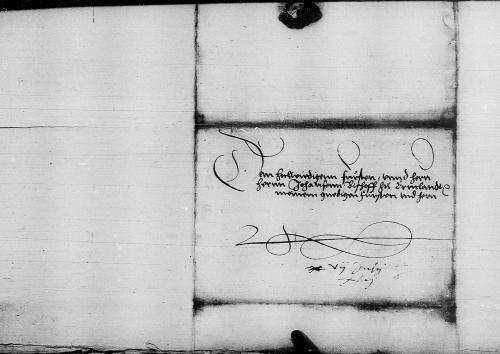 Dem hochwirdigenn fursten, vnnd hern
hernn Johansenn Bischoff des Ermlandt
meinem gnedigen fursten vnd hern
vij July